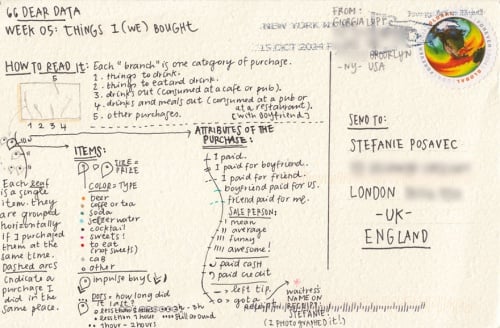 66 DEAR DATA
WEEK 05: THINGS I (WE) BOUGHT
HOW TO READ It: Each "branch" is one category of purchase.
1. things to drink.
2. things to eat and drink.
3. drinks out (consumed at a cafe or pub).
4. drinks and meals out (consumed at a pub or at a restaurant).
(with boyfriend)
5. other purchases.
5
1 2 3 4
ITEMS:
SIZE = PRIZE
COLOR = TYPE
beer
coffee or tea
soda
water
cocktail
sweets!
to eat
(not sweets)
cab
other
impulse buy (!)
DOTS = how long did it last?
less than 1 hour
still around
1 hour - 2 hours
Each leaf is a single item. they are grouped horizontally if I purchased them at the same time.
Dashed arcs indicate a purchase I did in the same place.
ATTRIBUTES OF the PURCHASE:
I paid.
I paid for boyfriend.
I paid for friend.
boyfriend paid for us.
friend paid for me.
SALE PERSON:
mean
average
funny
awesome!
paid cash
paid credit
left tip
got a
waitress' NAME ON RECEIPT:
STEFANIE!
(I PHOTOGRAPHED it!)
FROM:
GIORGIA LUPI
BROOKLYN
-NY- USA
NEW YORK
15 OCT 2014
GLOBAL
FOREVER
SEND TO:
STEFANIE POSAVEC
LONDON
-UK-
ENGLAND